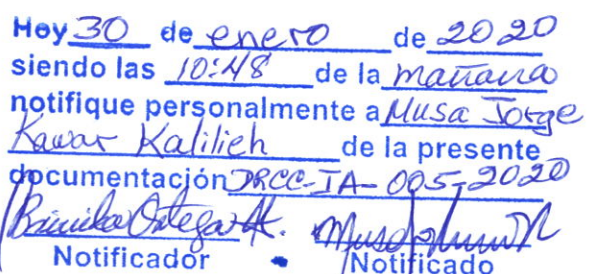 Hoy 30 de enero de 2020
siendo las 10:48 de la mañana
notifique personalmente a Musa Jorge
Kawar Kalilieh de la presente
documentación DRCC-IA-005-2020
Notificador Notificado